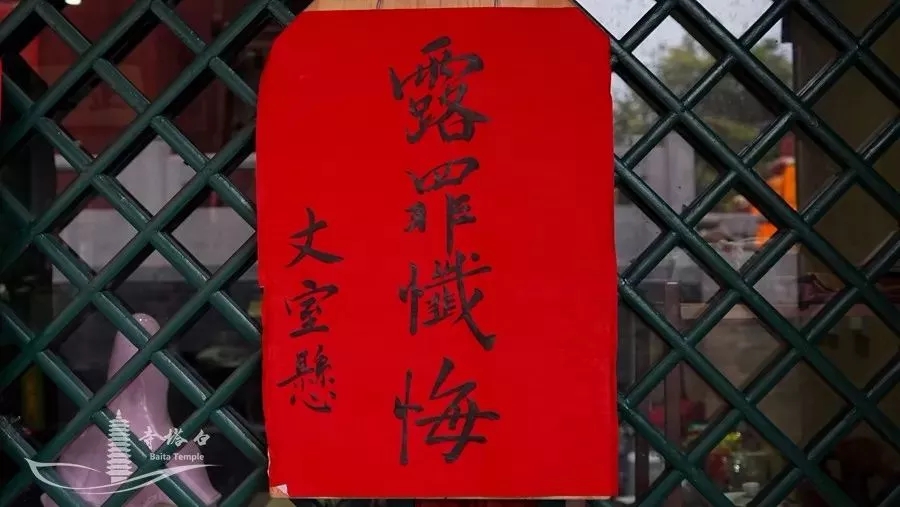 露罪懺悔
丈室懸
寺塔白
Baita Temple